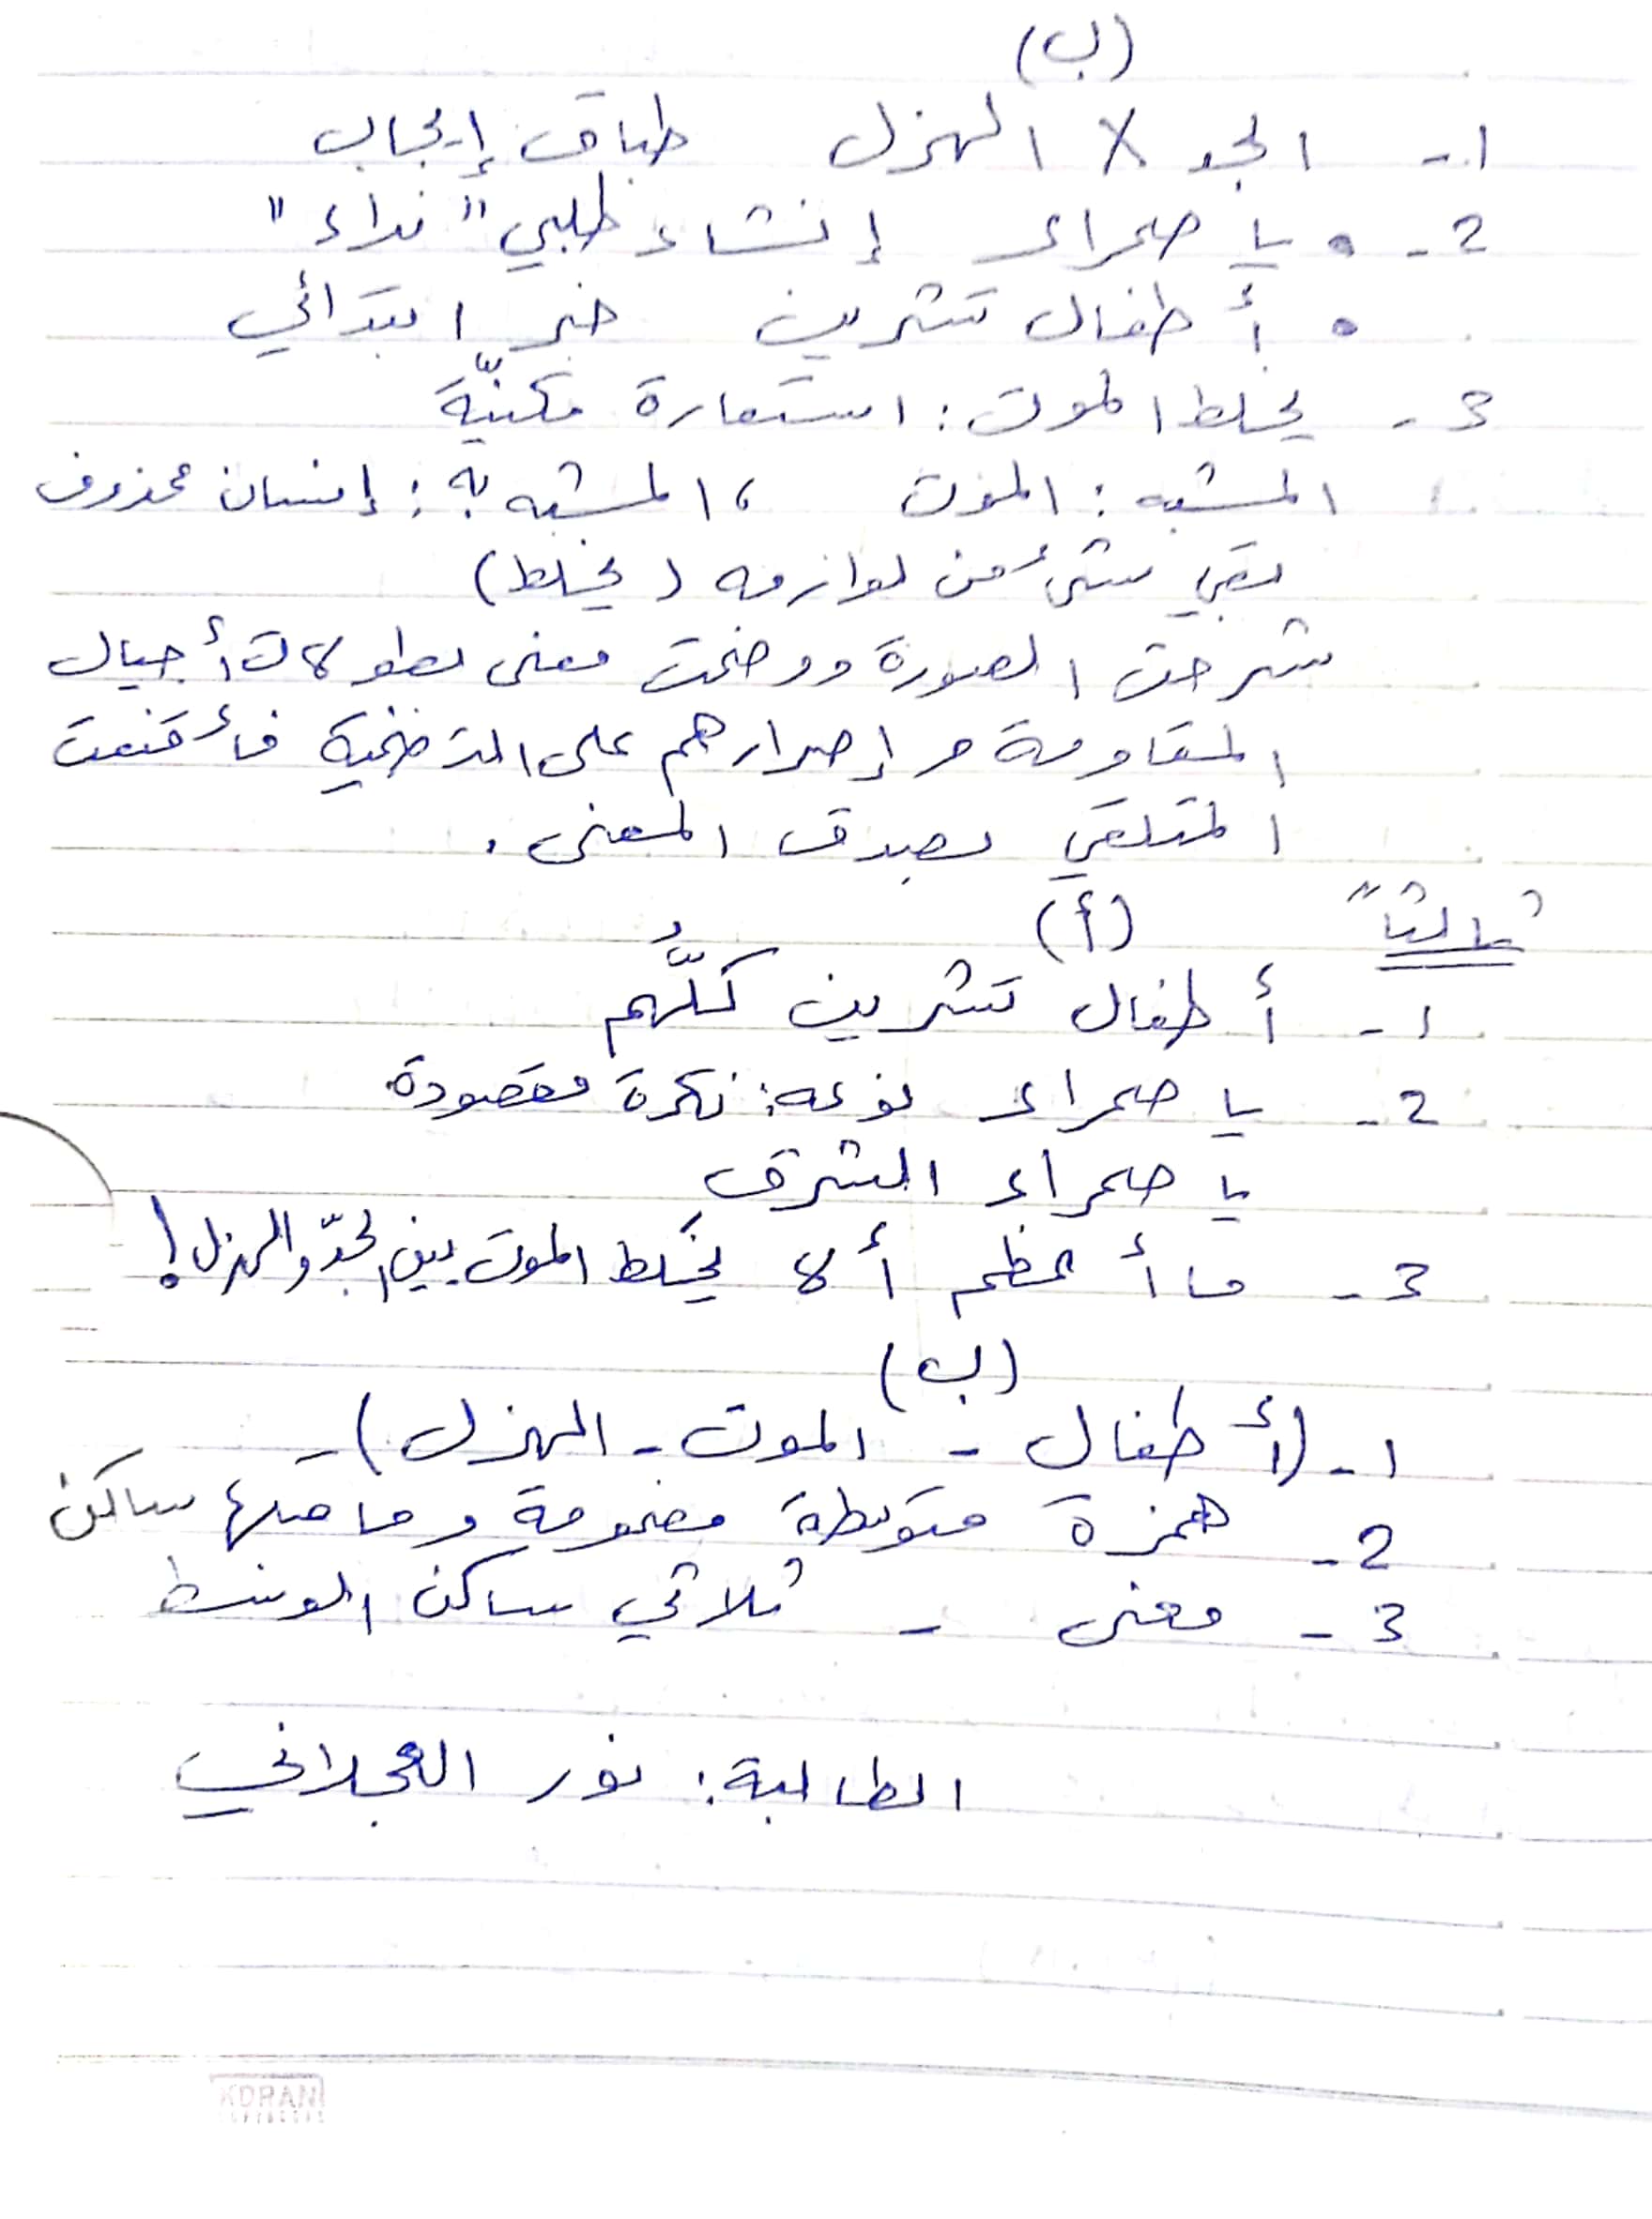 (ب)
1- الجد X الهزل طباق إيجاب
2- • يا صحراء إنشاء طلبي "نداء"
• أطفال تشرين خبر ابتدائي
3- يخلط الموت: استعارة مكنيّة
المشبه: الموت، المشبه به: إنسان محذوف
بقي شيء من لوازمه (يخلط)
شرحت الصورة ووضحت معنى بطولات أجيال
المقاومة وإصرارهم على التضحية فأقنعت
المتلقي بصدق المعنى.
ثالثاً (أ)
1- أطفال تشرين كلُّهم
2- يا صحراء نوعه: نكرة مقصودة
يا صحراء الشرق
3- ما أعظم ألا يخلط الموت بين الجدّ والهزل!
(ب)
1- (أطفال - الموت - الهزل)-
2- همزة متوسطة مضمومة وما قبلها ساكن
3- معنى - ثلاثي ساكن الوسط
الطالبة: نور العجلاني
KORAN